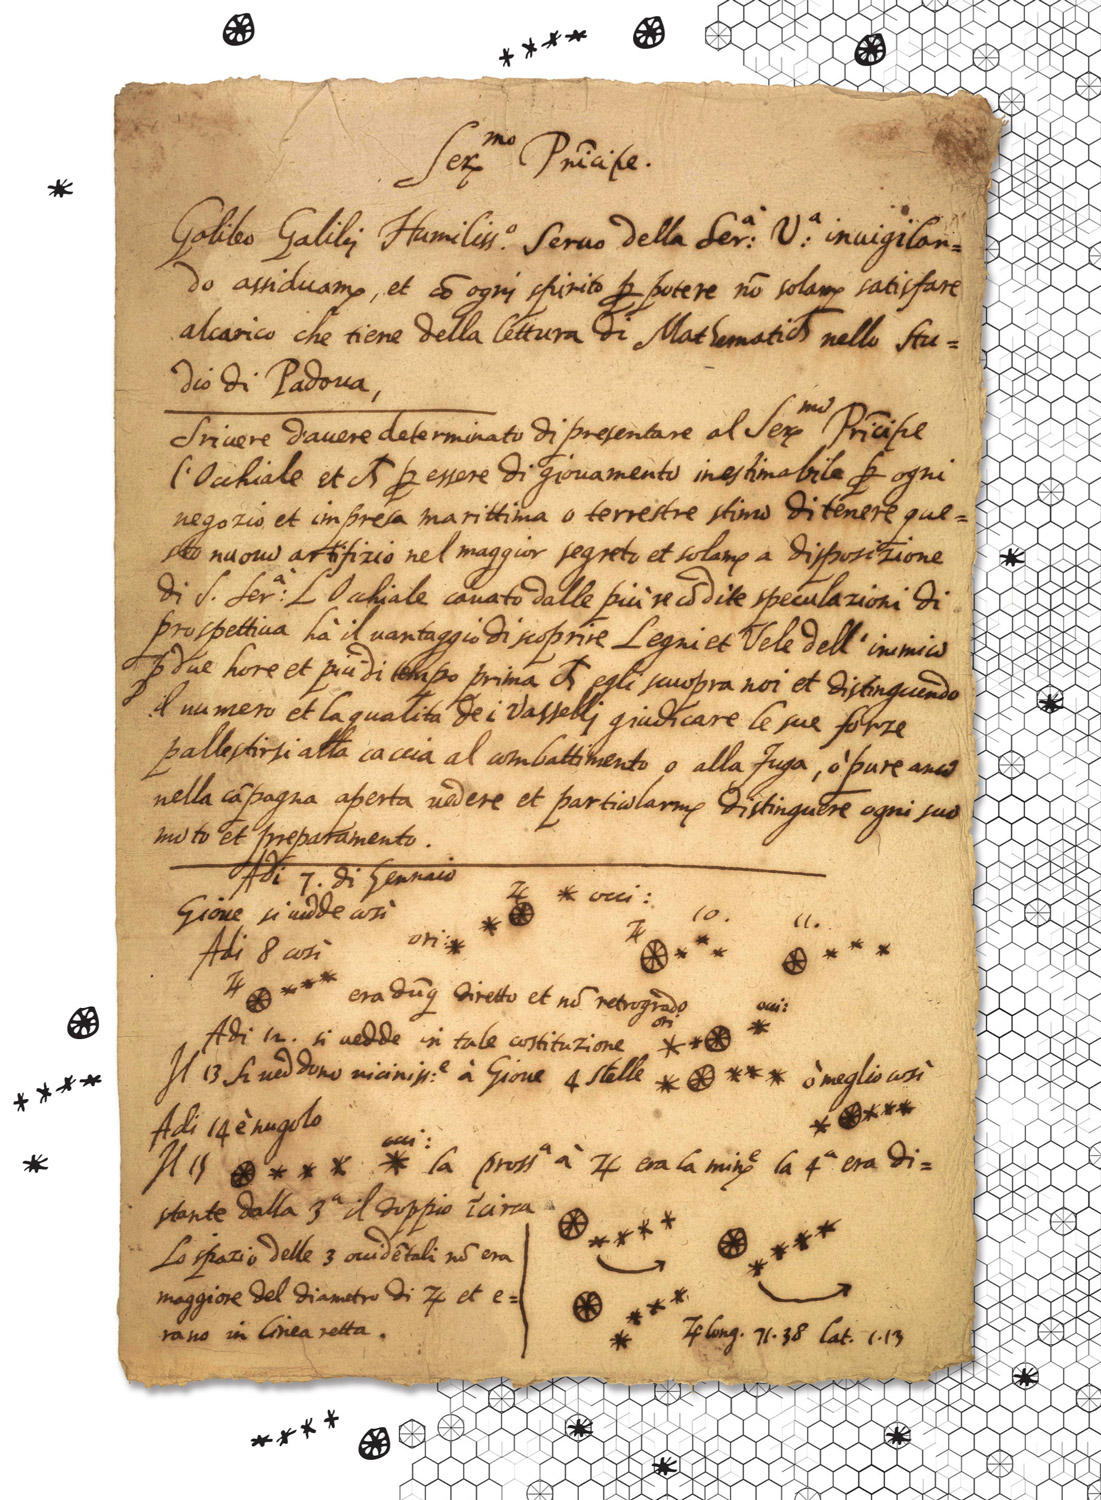 Ser.mo Pn̄cipe.
Galileo Galilej Humiliss.o Seruo della Ser:a V:a inuigilan=
do assiduam., et cō ogni spirito p potere nō solam. satisfare
al carico che tiene della lettura di Mathematica nello Stu=
dio di Padoua,
Scriuere d'auere determinato di presentare al Ser.mo Pn̄cipe
l'Occhiale et p essere di giouamento inestimabile p ogni
negozio et impresa marittima o terrestre stimo di tenere que=
sto nuouo artifizio nel maggior segreto et solam. a disposizione
di S. Ser:a L'Occhiale cauato dalle più recōdite speculazioni di
prospettiua hà il uantaggio di scoprire Legni et Vele dell' inimico
p due hore et più di tempo prima egli scuopra noi et distinguendo
il numero et la qualità de i Vasselli giudicare le sue forze
pallestirsi alla caccia al combattimento o alla fuga, ò pure anco
nella cāpagna aperta uedere et particolarm. distinguere ogni suo
moto et preparamento.
Adi 7. di Gennaio
Gioue si uedde così ♃ * occi:
Adi 8 così ori: * * ♃ 10. * * * 11. * * *
♃ * * * era dūq diretto et nō retrogrado
Adi 12. si uedde in tale costituzione ori * * occi: *
Il 13 si ueddono uiciniss:e à Gioue 4 stelle * * * * ò meglio così
* * * *
Adi 14 è nugolo
Il 15 * * * occi: * la pross.a à ♃ era la min.e la 4.a era di=
stante dalla 3.a il doppio ī circa
Lo spazio delle 3 occidētali nō era
maggiore del diametro di ♃ et e=
rano in linea retta.
* * * *
* * * *
* * * *
♃ long. 71.38 lat. 1.13